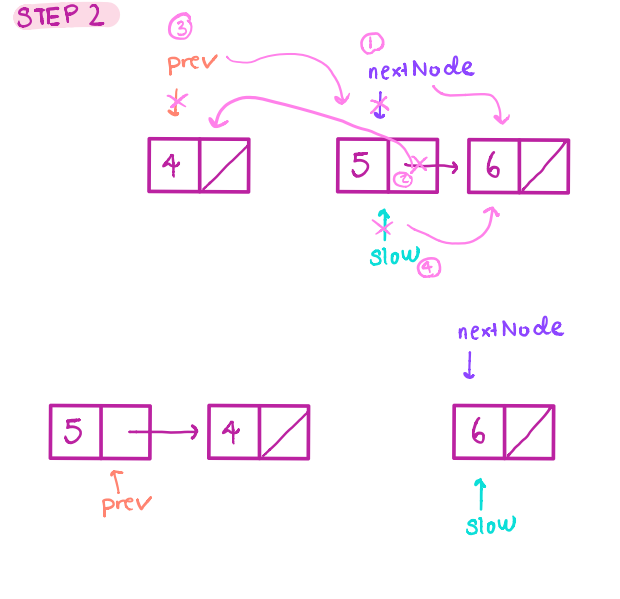 STEP 2
3
1
prev
nextNode
4
5
6
2
slow
4
nextNode
5
4
6
prev
slow